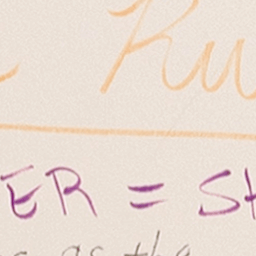 Ru
ER = SH
as the